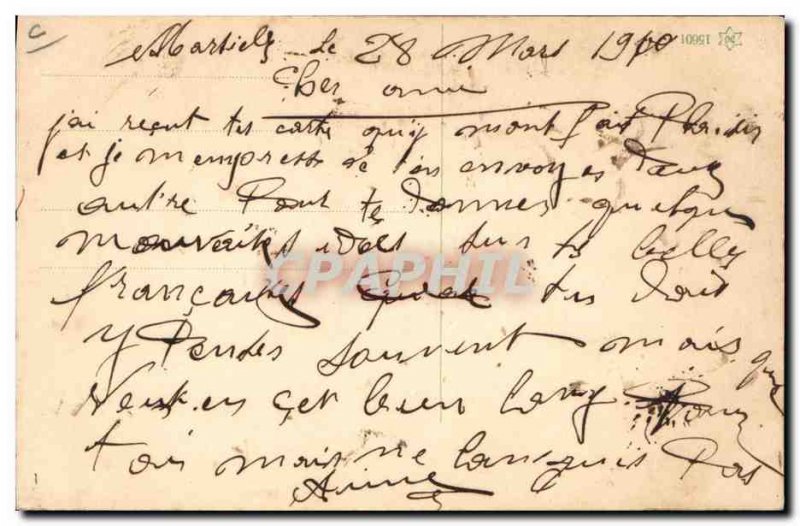 Marseille le 28 Mars 1910
15601
Cher ami
j'ai reçut tes carte quij mont fait Plaisir
et je mempresse de ten envoyer deux
autre Pour te donner quelque
mauvaises idées sur ts belles
françaises tus dois
y Penser souvent mais que
veux tu cet bien long Pour
toi mais ne languis Pas
CPAPHIL